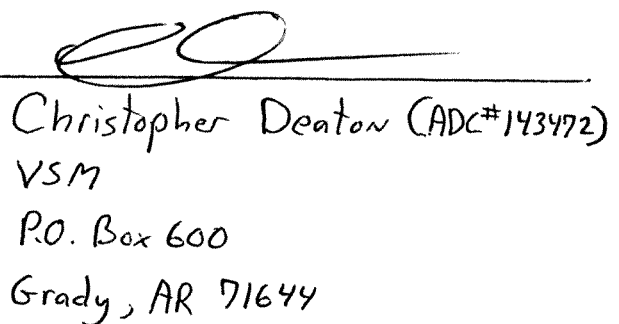 Christopher Deaton (ADC#143472)
VSM
P.O. Box 600
Grady, AR 71644